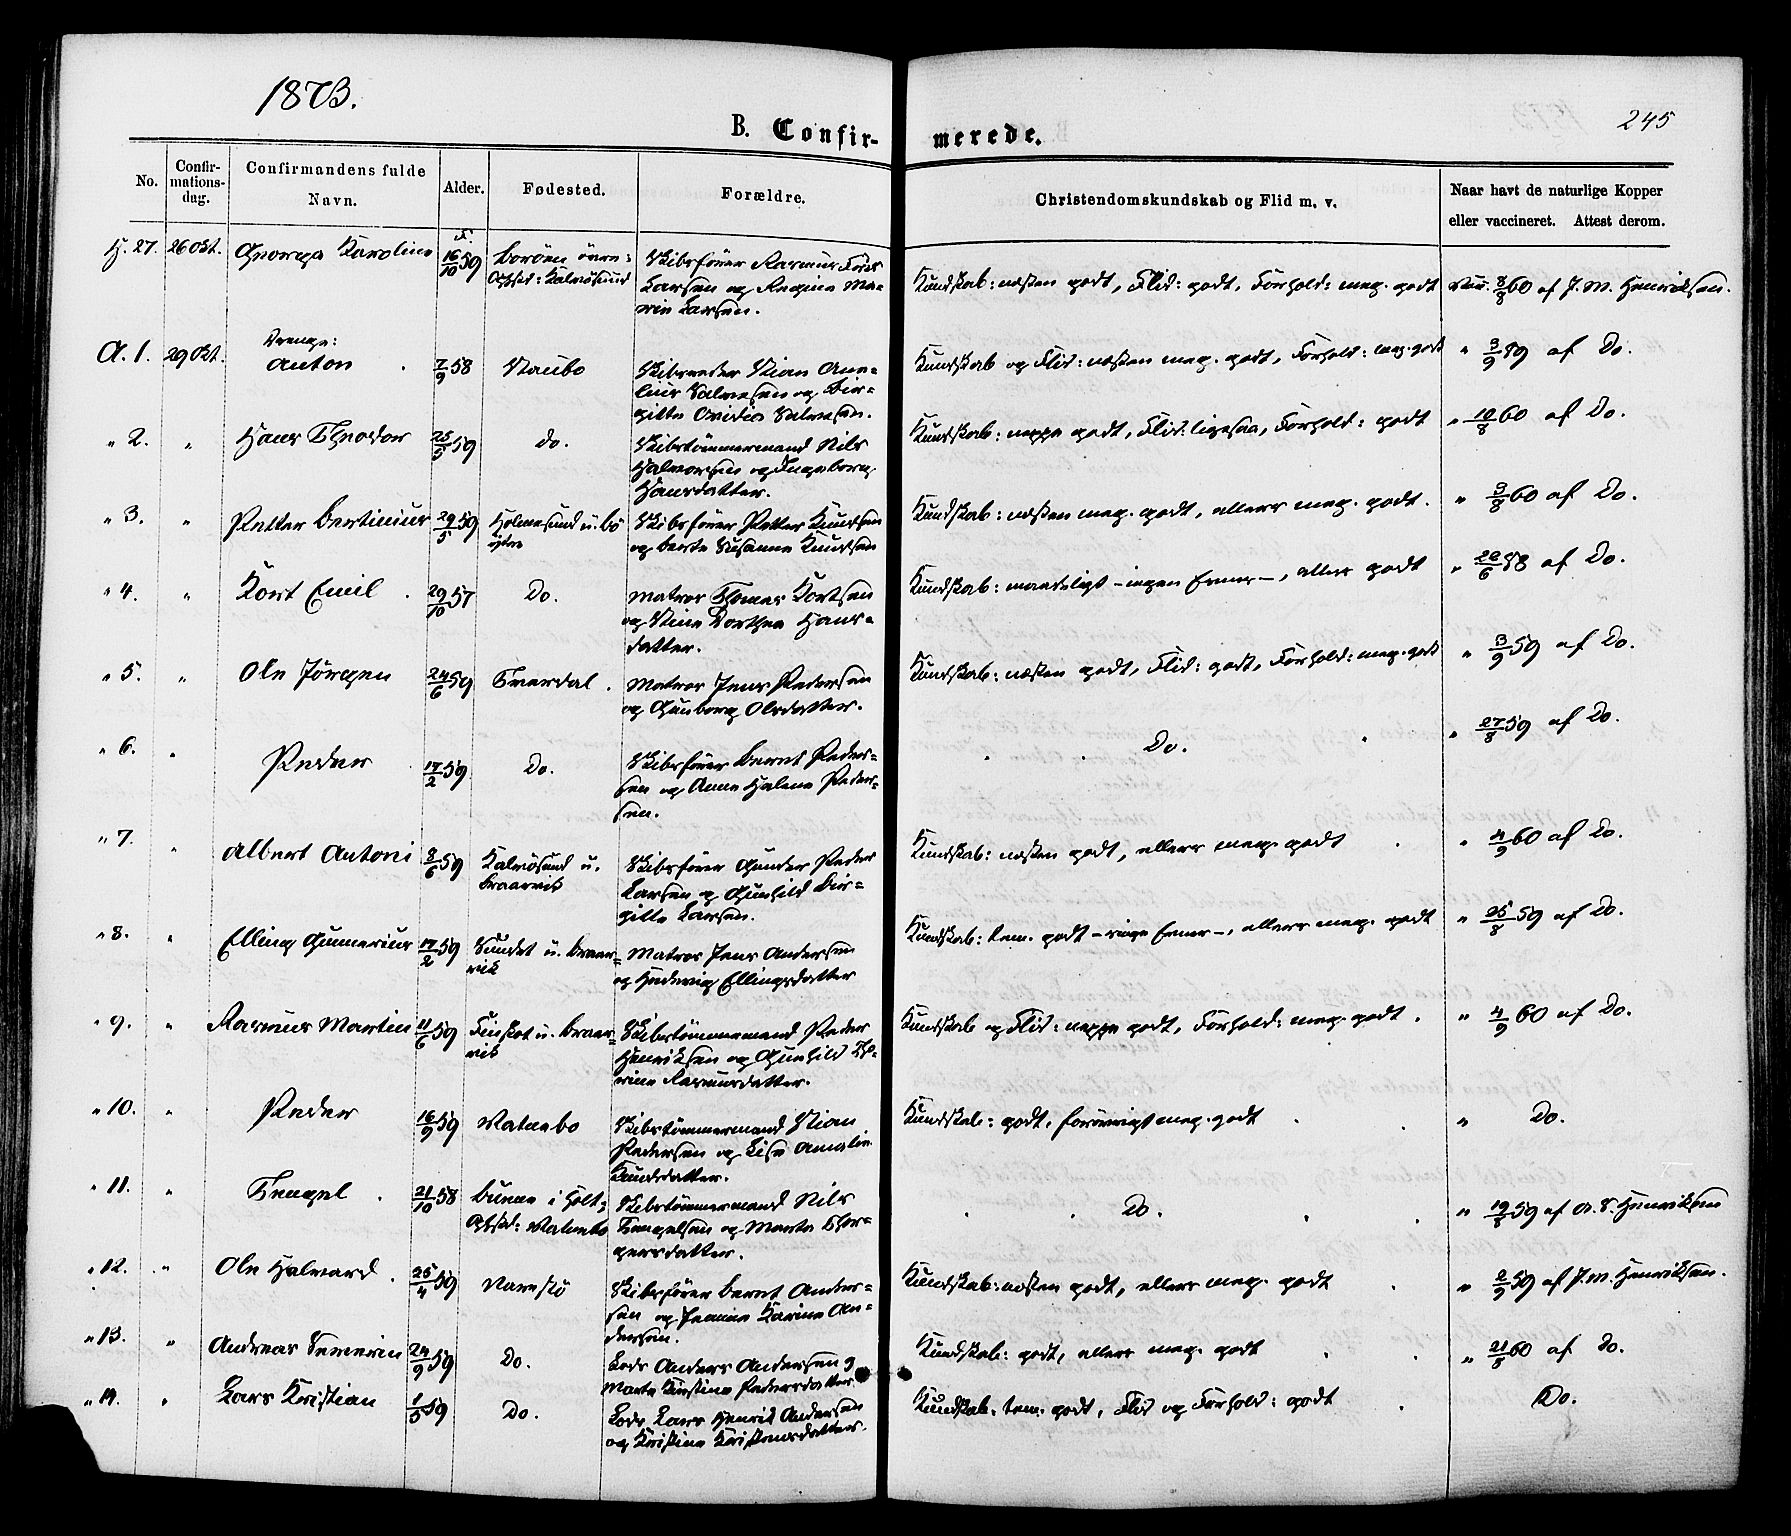 1873.
245
B. Confir-
merede.
No.
Confir-
mations-
dag.
Confirmandens fulde
Navn.
Alder.
Fødested.
Forældre.
Christendomskundskab og Flid m. v.
Naar havt de naturlige Kopper
eller vaccineret. Attest derom.
H. 27. 26 Okt. Georgea Karoline F. 16/10 59 Borøen øvre:
Opfst: Kalvøsund
Skibsfører Rasmus Fred.
Larsen og Regine Ma-
rie Larsen.
Kundskab: næsten godt, Flid: godt, Forhold: meg. godt
Vacc. 8/8 60 af J. M. Henriksen.
A. 1. 29 Okt. Drenge:
Anton 7/9 58 Staubo
Skibsreder Stian Ane-
lius Salvesen og Bir-
gitte Ovidia Salvesen.
Kundskab og Flid: næsten meg. godt, Forhold: meg. godt
" 3/9 59 af Do.
" 2. " Hans Theodor 25/5 59 do.
Skibstømmermand Nils
Halvorsen og Ingeborg
Hansdatter.
Kundskab: neppe godt, Flid: ligesaa, Forhold: godt
" 10/8 60 af Do.
" 3. " Petter Bertinius 29/5 59 Holmesund u. Bo
ytre
Skibsfører Petter Knudsen
og Berte Susanne Knudsen
Kundskab: næsten meg. godt, ellers meg. godt.
" 3/8 60 af Do.
" 4. " Kort Emil 29/10 57 Do.
Matros Thomas Kortsen
og Stine Dorthea Hans-
datter.
Kundskab: maadeligt - ingen Evner -, ellers godt
" 20/6 58 af Do.
" 5. " Ole Jørgen 24/6 59 Tverdal.
Matros Jens Pedersen
og Gunborg Olsdatter.
Kundskab: næsten godt, Flid: godt, Forhold: meg. godt
" 3/9 59 af Do.
" 6. " Peder 17/2 59 Do.
Skibsfører Bernt Peder-
sen og Anne Halene Peder-
sen.
" Do. "
" 27/8 59 af Do.
" 7. " Albert Antoni 8/6 59 Kalvøsund u.
Braarvik
Skibsfører Gunder Peder
Larsen og Gunhild Bir-
gitte Larsen.
Kundskab: næsten godt, ellers meg. godt
" 4/9 60 af Do.
" 8. " Elling Gunnerius 17/2 59 Sundet u. Braar-
vik
Matros Jens Andersen
og Hedevig Ellingsdatter
Kundskab: tem. godt - ringe Evner -, ellers meg. godt
" 25/8 59 af Do.
" 9. " Rasmus Martin 11/6 59 Finskot u. Braar-
vik
Skibstømmermand Peder
Henriksen og Gunhild Tho-
rine Rasmusdatter.
Kundskab og Flid: neppe godt, Forhold: meg. godt.
" 4/9 60 af Do.
" 10. " Peder 16/9 59 Vatnebo
Skibstømmermand Stian
Pedersen og Lise Amalie
Knudsdatter.
Kundskab: godt, forøvrigt meg. godt
" Do.
" 11. " Tengel 21/10 58 Buene i Holt;
Opfst: Vatnebo
Skibstømmermand Nils
Tengelsen og Marte Thor-
gersdatter.
" Do. "
" 19/8 59 af A. S. Henriksen
" 12. " Ole Halvard 25/4 59 Narestø
Skibsfører Bernt Ander-
sen og Jennine Karine An-
dersen.
Kundskab: næsten godt, ellers meg. godt
" 2/9 59 af J. M. Henriksen.
" 13. " Andreas Severin 24/9 59 Do.
Lods Anders Andersen og
Marte Kirstine Pedersdatter.
Kundskab: godt, ellers meg. godt
" 21/5 60 af Do.
" 14. " Lars Kristian 1/5 59 Do.
Lods Lars Henrik Andersen
og Kristine Kristensdatter.
Kundskab: tem. godt, Flid og Forhold: godt
Do.